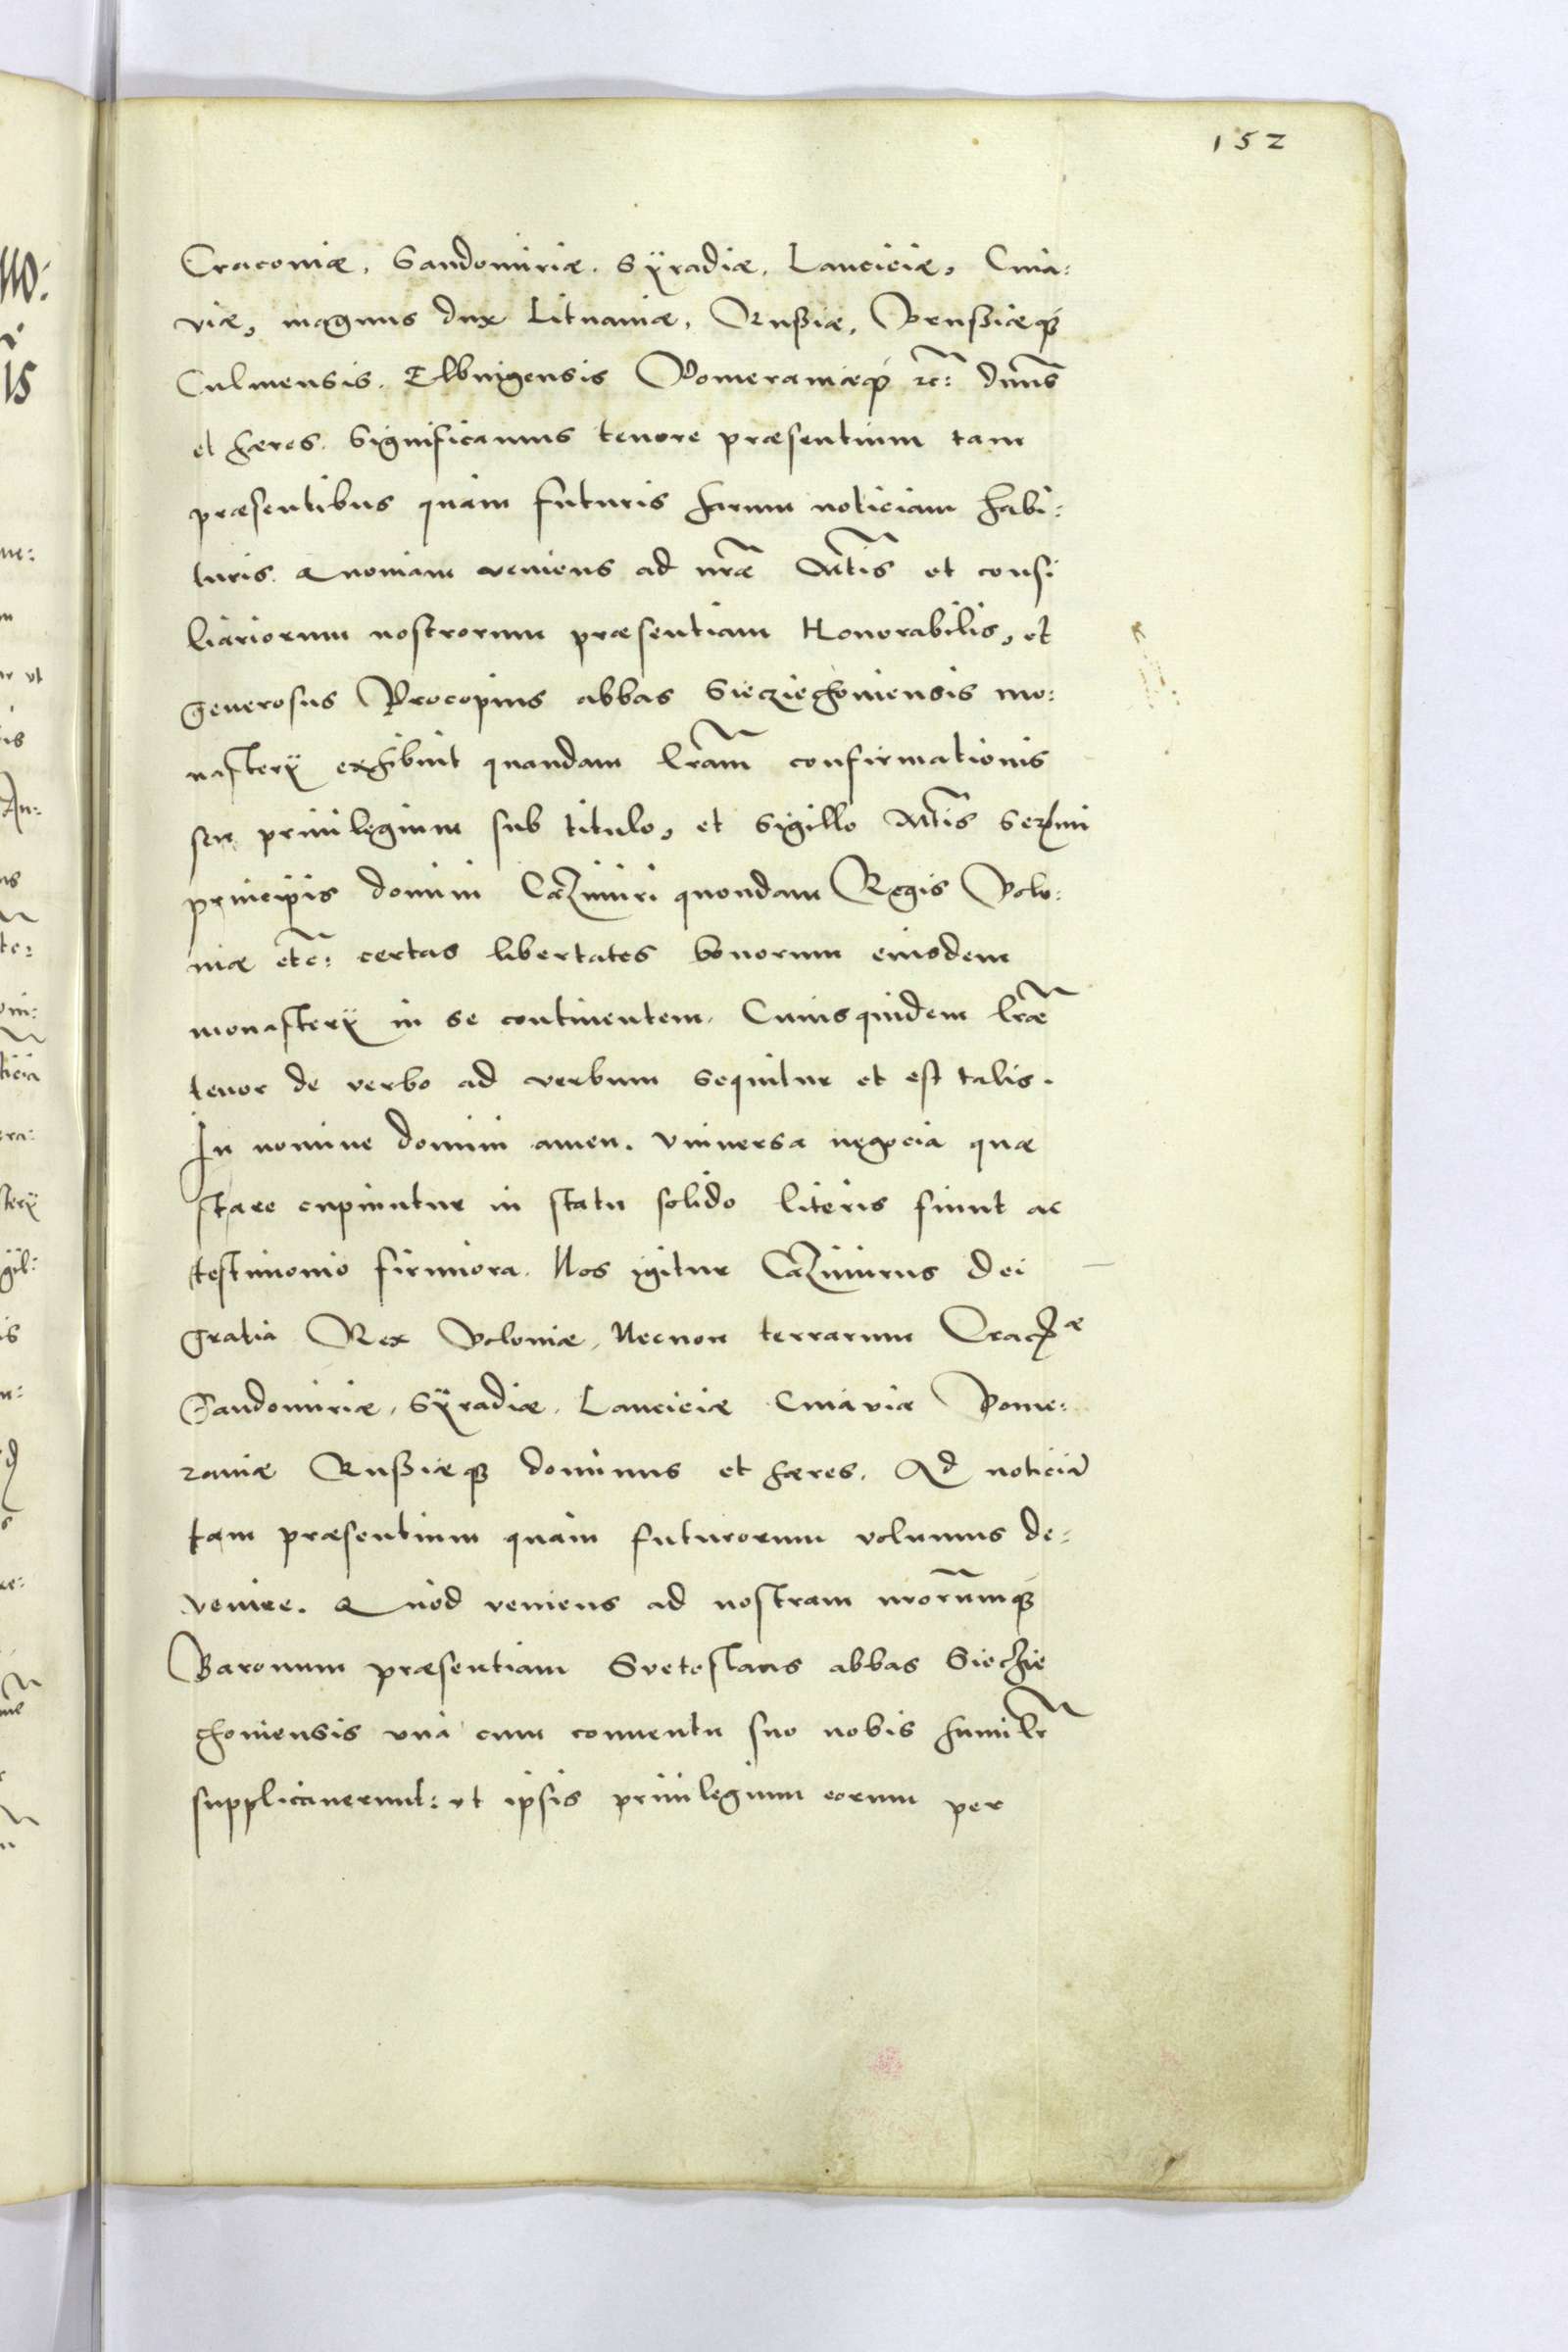 152
Craconiæ, Sandomiriæ. Sÿradiæ, Lanciciæ, Cuia:
viæ, magnus dux Lituaniæ, Rußiæ, Prußiæq3
Culmensis. Elbingensis Pomeraniæq3 ꝛc̃: dnũs
et hæres. Significamus tenore præsentium tam
præsentibus quàm futuris harum noticiam habi:
turis. Quoniam veniens ad nr̃æ Mt̃is et consi
liariorum nostrorum præsentiam Honorabilis, et
generosus Procopius abbas Sieciechoniensis mo:
nasterÿ exhibuit quandam lr̃am confirmationis
seu priuilegium sub titulo, et sigillo Mt̃is Serᵐⁱ
principis domini Cazimiri quondam Regis Polo:
niæ etc̃: certas libertates bonorum eiusdem
monasterÿ in se continentem. Cuiusquidem lr̃æ
tenor de verbo ad verbum sequitur et est talis.
In nomine domini amen. Vniuersa negocia quæ
stare cupiuntur in statu solido literis fiunt ac
testimonio firmiora. Nos igitur Cazimirus Dei
gratia Rex Poloniæ, Necnon terrarum Craciæ
Sandomiriæ, Sÿradiæ, Lanciciæ Cuiàviæ Pome:
raniæ Rußiæq3 dominus et hæres. Ad noticiã
tam præsentium quàm futurorum volumus de:
venire. Quòd veniens ad nostram nr̃orumq3
Baronum præsentiam Svetoslaus abbas Siechie
choniensis vnà cum conuentu suo nobis humilr̃
supplicauerunt: vt ipsis priuilegium eorum per